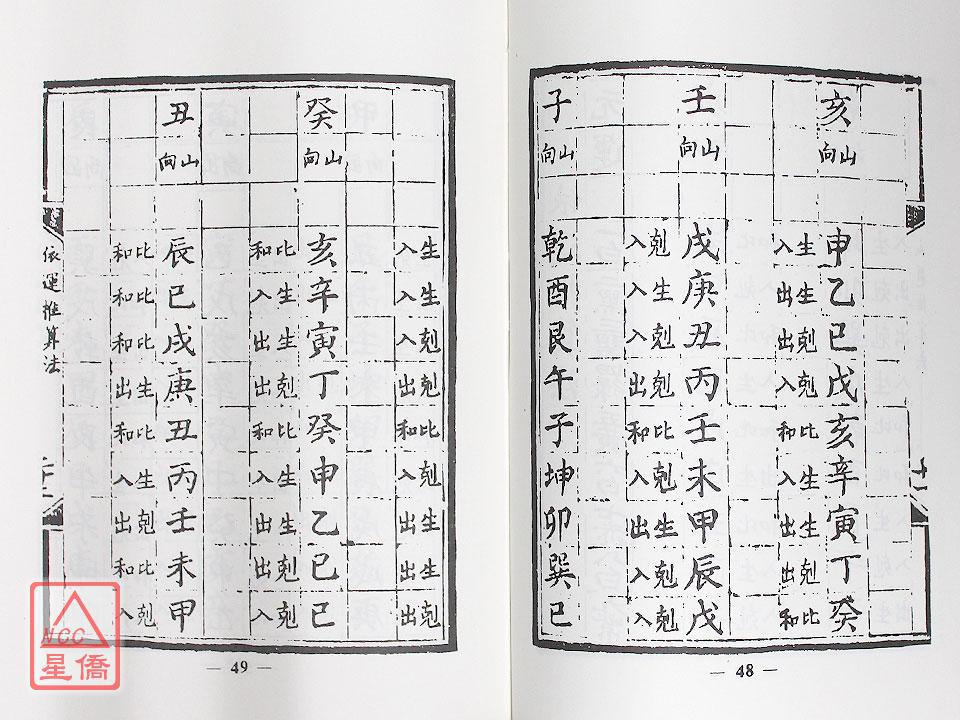 亥山向
申乙巳戊亥辛寅丁癸
生入 生出 剋出 剋入 比和 生入 生出 剋出 比和
壬山向
戌庚丑丙壬未甲辰戊
剋入 生入 剋入 剋出 比和 剋入 生出 剋入 剋入
子山向
乾酉艮午子坤卯巽己
— 48 —
生入 生入 剋入 剋出 比和 剋入 生出 生出 剋出
癸山向
亥辛寅丁癸申乙巳己
比和 生入 生出 剋出 比和 生入 生出 剋出 剋入
丑山向
辰巳戌庚丑丙壬未甲
比和 比和 比和 生出 比和 生入 剋出 比和 剋入
依運推算法
— 49 —
NCC
星僑